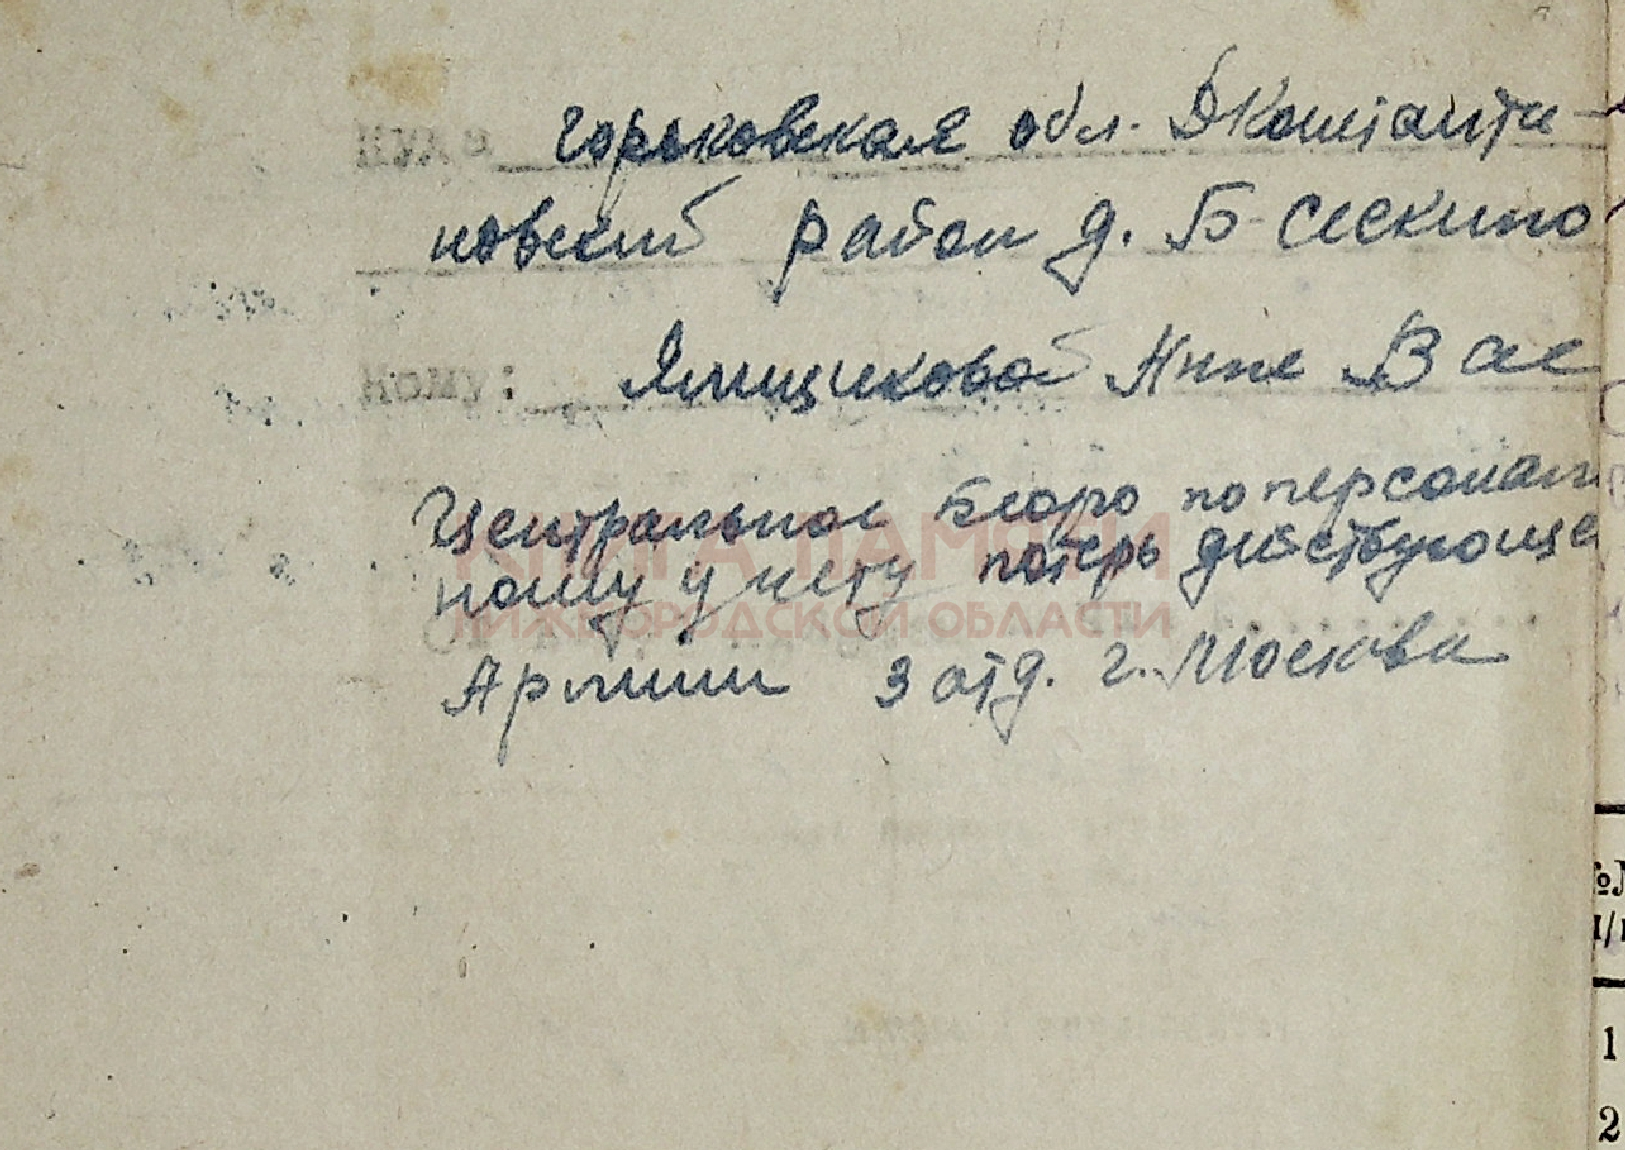 Куда Горьковская обл. Дконстанти-
новский район д. Б-Сескино
Кому: Ямщиковой Анне Вас
Центральное Бюро по персональ
ному учету потерь действующе
Армии 3 отд. г. Москва
КНИГА ПАМЯТИ
НИЖЕГОРОДСКОЙ ОБЛАСТИ
1
2